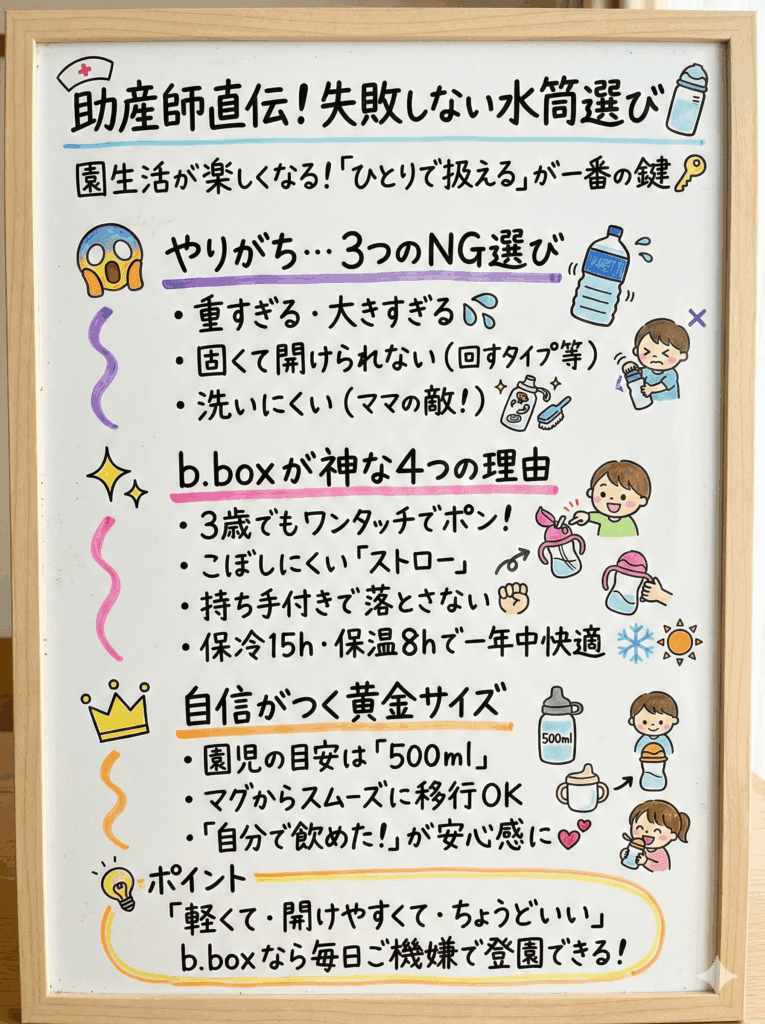 助産師直伝！失敗しない水筒選び
園生活が楽しくなる！「ひとりで扱える」が一番の鍵
やりがち…3つのNG選び
・重すぎる・大きすぎる
・固くて開けられない（回すタイプ等）
・洗いにくい（ママの敵！）
b.boxが神な4つの理由
・3歳でもワンタッチでポン！
・こぼしにくい「ストロー」
・持ち手付きで落とさない
・保冷15h・保温8hで一年中快適
自信がつく黄金サイズ
500ml
・園児の目安は「500ml」
・マグからスムーズに移行OK
・「自分で飲めた！」が安心感に
ポイント
「軽くて・開けやすくて・ちょうどいい」
b.boxなら毎日ご機嫌で登園できる！